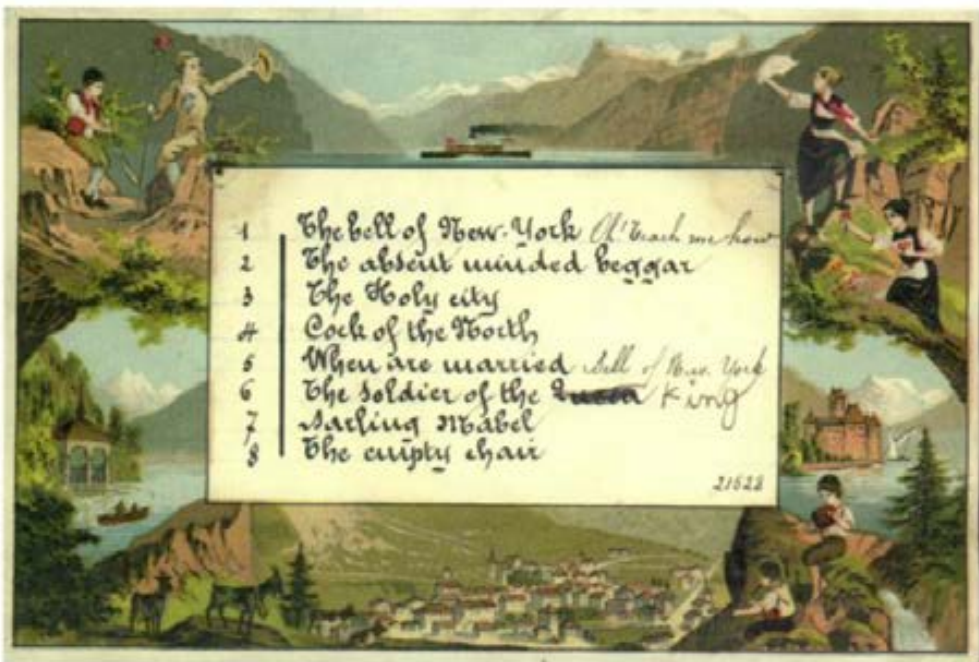 1 The bell of New-York O! Teach me how
2 The absent minded beggar
3 The Holy city
4 Cock of the North
5 When are married Bell of New York
6 The Soldier of the Queen King
7 Darling Mabel
8 The empty chair
21622